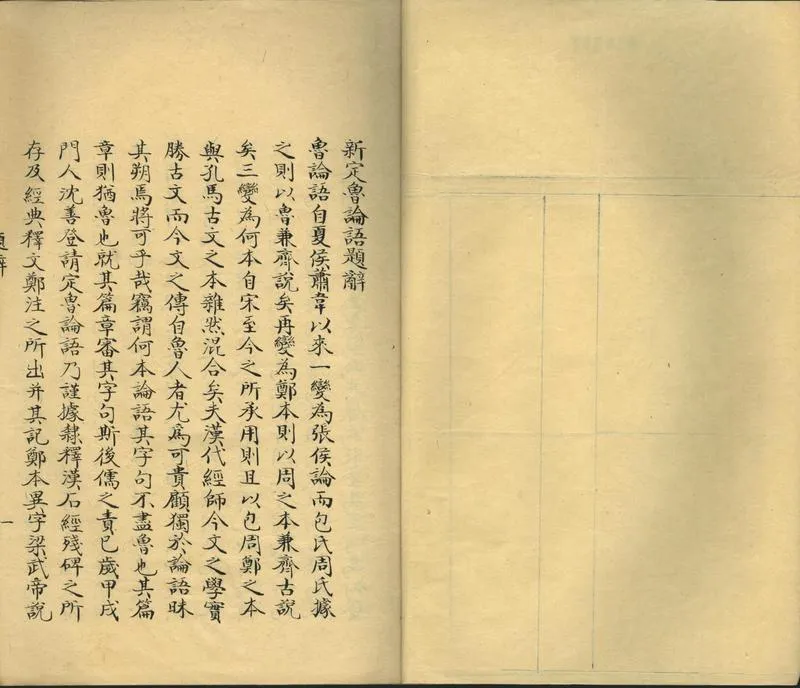 新定魯論語題辭
魯論語自夏侯蕭韋以來一變為張侯論而包氏周氏據
之則以魯兼齊說矣再變為鄭本則以周之本兼齊古說
矣三變為何本自宋至今之所承用則且以包周鄭之本
與孔馬古文之本雜然混合矣夫漢代經師今文之學實
勝古文而今文之傳自魯人者尤為可貴顧獨於論語昧
其朔焉將可乎哉竊謂何本論語其字句不盡魯也其篇
章則猶魯也就其篇章審其字句斯後儒之責已歲甲戌
門人沈善登請定魯論語乃謹據隸釋漢石經殘碑之所
存及經典釋文鄭注之所出并其記鄭本異字梁武帝說
題辭
一